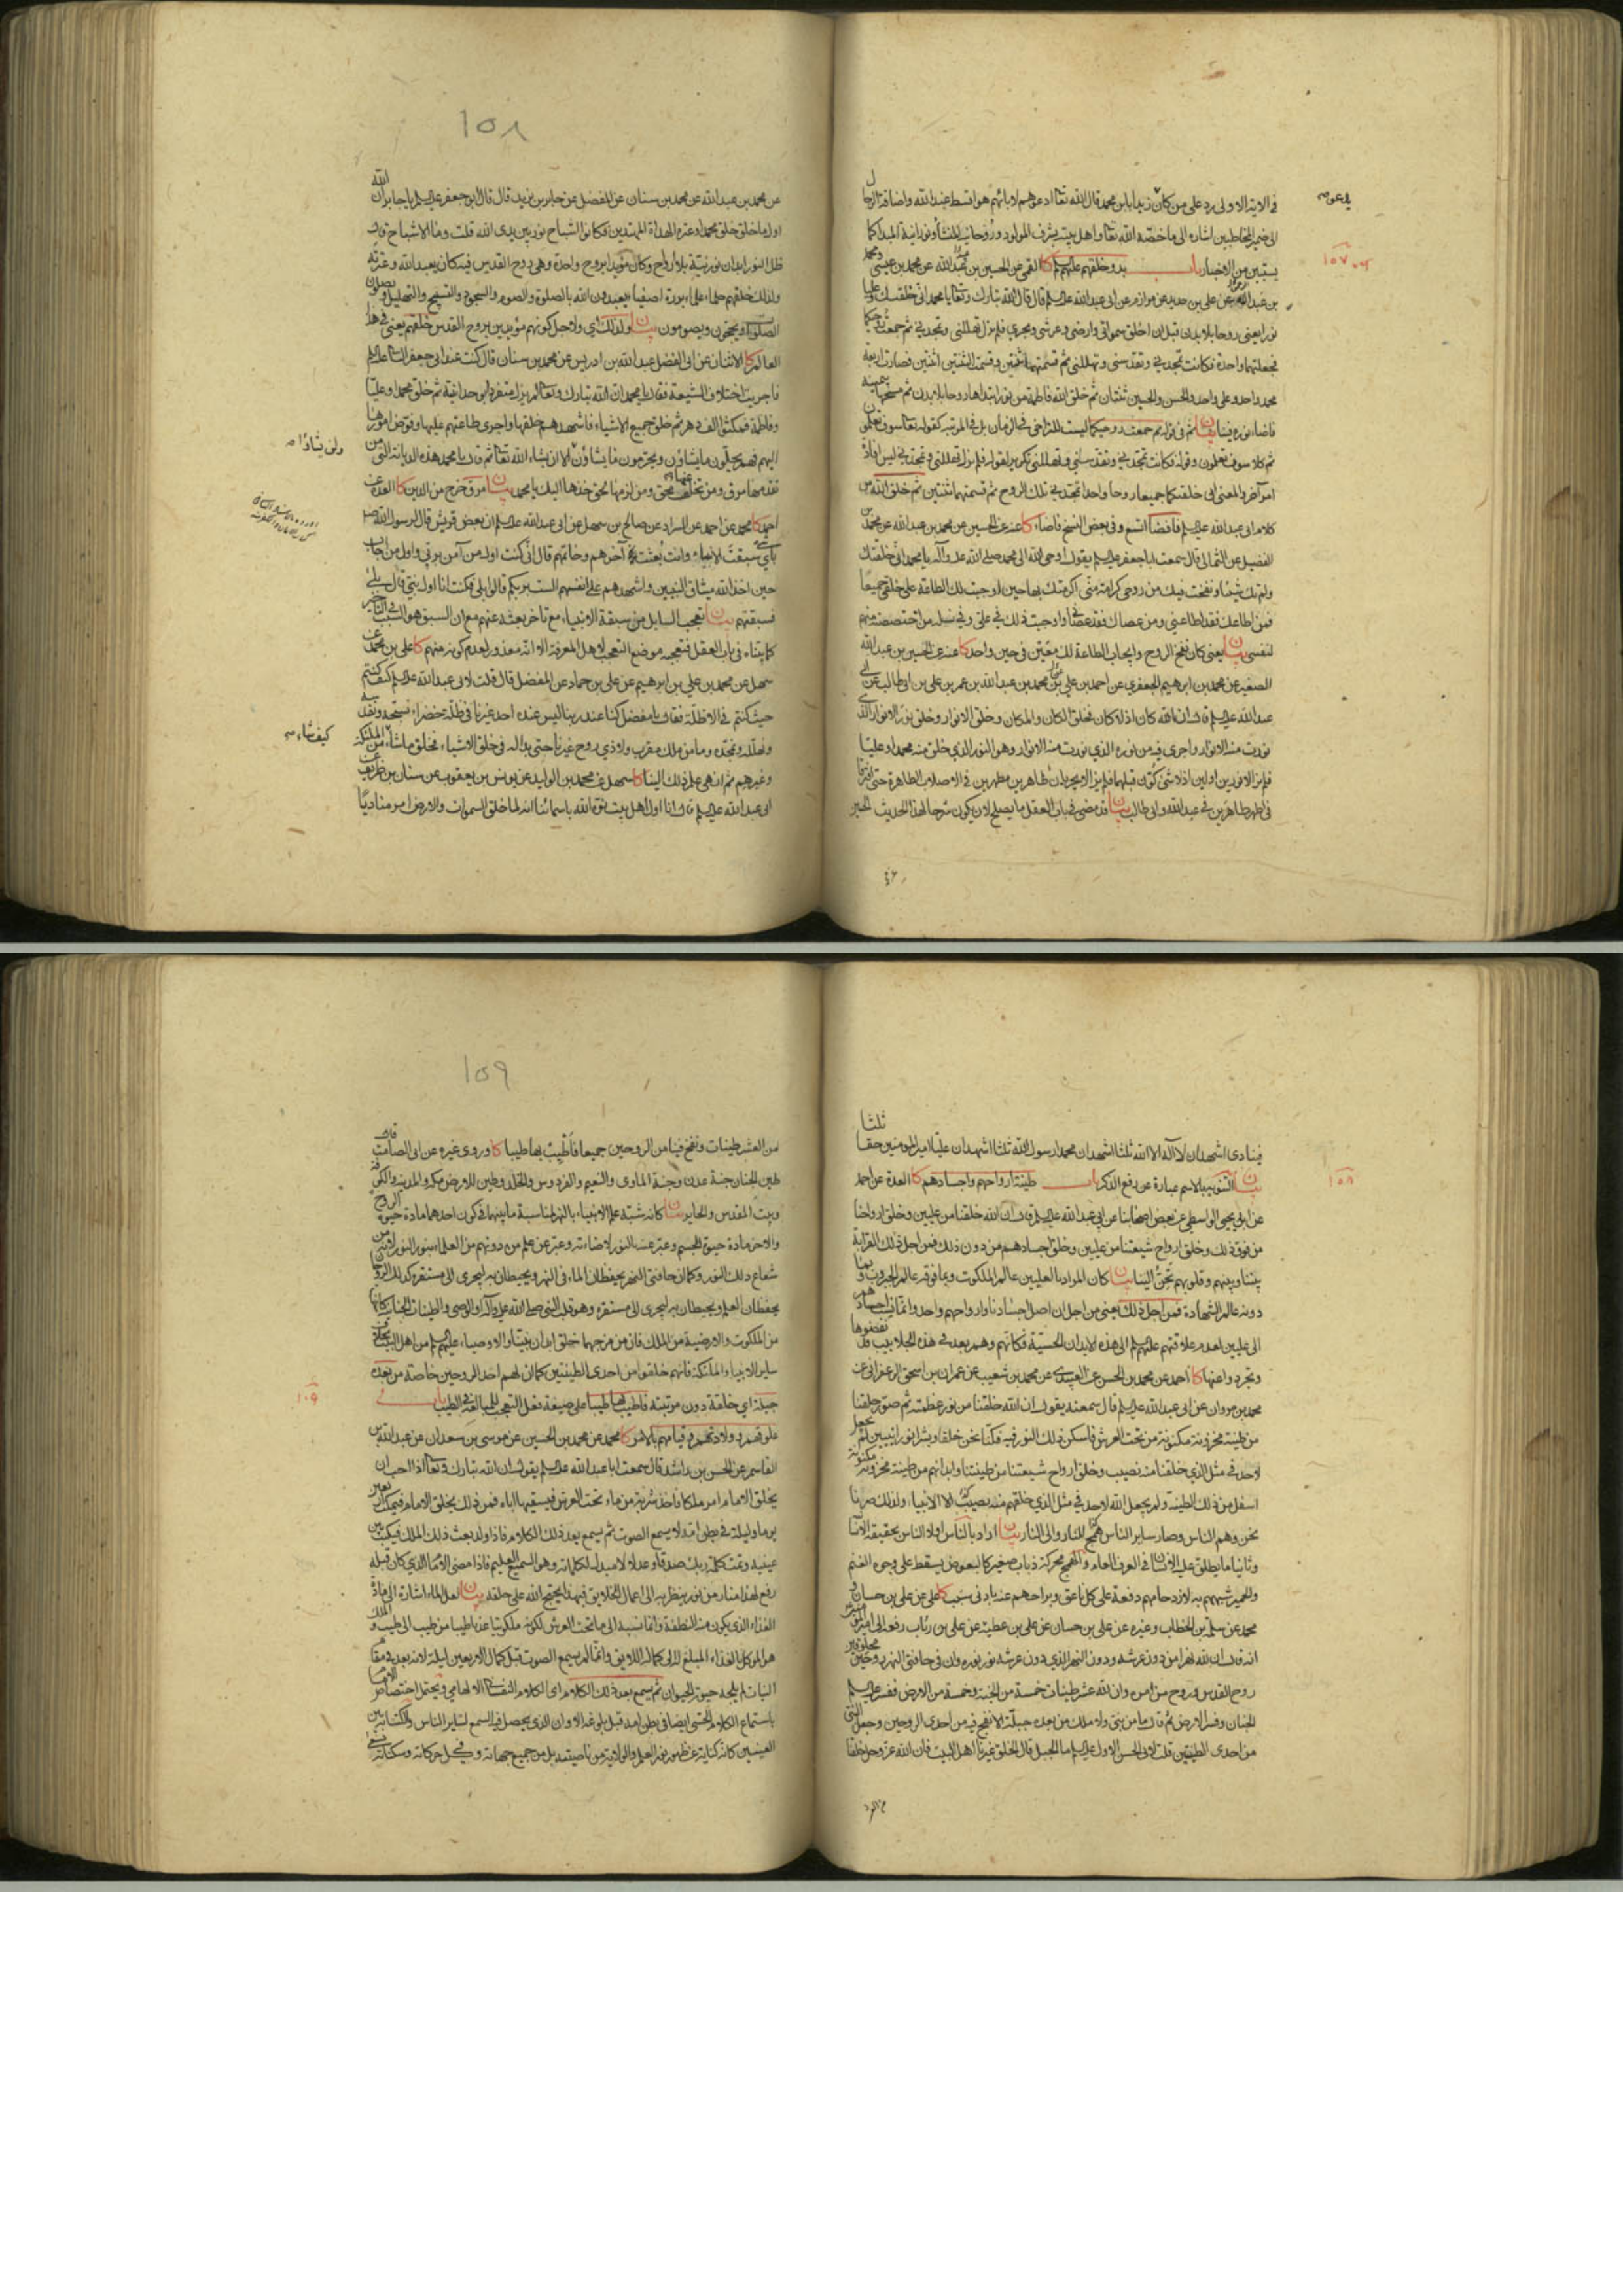 في الاية الاولى رد على من كان زيد ابا بن محمد قال الله تعا ادعوهم لابائهم هو اقسط عند الله واضافة الرجال
يدعو
الى ضمير المخاطبين اشارة الى ما خصّه الله تعا واهل بيته بشرف المولود وروحانية المنشأ ونورانية المبدا كما
يستبين من الاخبار باب بدو خلقهم عليهم كا القمي عن الحسين بن عبد الله عن محمد بن عيسى ومحمد
١٠٧
بن عبد الله عن علي بن حديد عن مرازم عن ابي عبد الله علـ قال قال الله تبارك وتعا يا محمد اني خلقتك وعليا
نورا يعني روحا بلا بدن قبل ان اخلق سمواتي وارضي وعرشي وبحري فلم تزل تهللني وتمجدني ثم جمعت روحيكما
فجعلتهما واحدة فكانت تمجدني وتقدسني وتهللني ثم قسمتها ثنتين وقسمت الثنتين اثنتين فصارت اربعة
محمد واحد وعلي واحد والحسن والحسين ثنتان ثم خلق الله فاطمة من نور ابتداها روحا بلا بدن ثم مسحنا بيمينه
فاضا نوره فينا بيان ثم في قوله ثم جمعت روحيكما ليست للتراخي في الزمان بل في المرتبة كقوله تعا سوف تعلمون
ثم كلا سوف تعلمون وقوله فكانت تمجدني وتقدسني وتهللني تكرير لقوله فلم تزل تهللني وتمجدني ليس افادة
امر آخر والمعنى اني خلقتكما جميعا روحا واحدا تمجدني تلك الروح ثم قسمتها ثنتين ثم خلق الله من
كلام ابي عبد الله علـ فافضا اتسع وفي بعض النسخ فاضاء كا عنه عن الحسين عن محمد بن عبد الله عن محمد بن
الفضيل عن الثمالي قال سمعت ابا جعفر علـ يقول اوحى الله الى محمد صلى الله عليه وآله يا محمد اني خلقتك
ولم تك شيئا ونفخت فيك من روحي كرامة مني اكرمتك بها حين اوجبت لك الطاعة على خلقي جميعا
فمن اطاعك فقد اطاعني ومن عصاك فقد عصاني واوجبت ذلك في علي وفي نسله من اختصصته منهم
لنفسي بيان يعني كان نفخ الروح وايجاب الطاعة لك معيّن في حين واحد كا عنه عن الحسين بن عبد الله
الصغير عن محمد بن ابرهيم الجعفري عن احمد بن علي بن محمد بن عبد الله بن عمر بن علي بن ابي طالب عن ابي
عبد الله علـ قال ان الله كان اذ لا كان فخلق الكان والمكان وخلق الانوار وخلق نور الانوار الذي
نورت منه الانوار واجرى فيه من نوره الذي نورت منه الانوار وهو النور الذي خلق منه محمدا وعليا
فلم يزالا نورين اولين اذ لا شئ كوّن قبلهما فلم يزالا يجريان طاهرين مطهرين في الاصلاب الطاهرة حتى افترقا
في اطهر طاهرين في عبد الله وابي طالب بيان قد مضى في باب العقل ما يصلح لان يكون شرحا لهذا الحديث الحسين
١٥٨
عن محمد بن عبد الله عن محمد بن سنان عن المفضل عن جابر بن يزيد قال قال ابو جعفر علـ يا جابر ان الله
اول ما خلق خلق محمدا وعترته الهداة المهتدين فكانوا اشباح نور بين يدي الله قلت وما الاشباح قال
ظل النور ابدان نورانية بلا ارواح وكان مؤيدا بروح واحدة وهي روح القدس فبه كان يعبد الله وعترته
ولذلك خلقهم حلماء علماء بررة اصفياء يعبدون الله بالصلوة والصوم والسجود والتسبيح والتهليل ويصلون
الصلوات ويحجون ويصومون بيان ولذلك اي ولاجل كونهم مؤيدين بروح القدس خلقهم يعني في هذا
العالم كا الاثنان عن ابي الفضل عبد الله بن ادريس عن محمد بن سنان قال كنت عند ابي جعفر الثاني علـ
فاجريت اختلاف الشيعة فقال يا محمد ان الله تبارك وتعا لم يزل متفردا بوحدانيته ثم خلق محمدا وعليا
وفاطمة فمكثوا الف دهر ثم خلق جميع الاشياء فاشهدهم خلقها واجرى طاعتهم عليها وفوض امورها
اليهم فهم يحلون ما يشاؤن ويحرمون ما يشاؤن الا ان يشاء الله تعا ثم قال يا محمد هذه الديانة التي من
ولن يشاؤا
تقدمها مرق ومن تخلف عنها محق ومن لزمها لحق خذها اليك يا محمد بيان مرق خرج من الدين كا العدة عن
احمد كا محمد عن احمد عن السراد عن صالح بن سهل عن ابي عبد الله علـ ان بعض قريش قال لرسول الله ص
باي شئ سبقت الانبياء وانت بعثت آخرهم وخاتمهم قال اني كنت اول من آمن بربي واول من اجاب
حين اخذ الله ميثاق النبيين واشهدهم على انفسهم الست بربكم قالوا بلى فكنت انا اول نبي قال بلى
فسبقتهم بيان تعجب السايل من سبقة الانبياء مع تاخر بعثه عنهم مع ان السبق هو السبب في التاخير
كما بيناه في باب العقل فتعجبه موضع التعجب لاهل المعرفة الا انه معذور لعدم كونه منهم كا علي بن محمد عن
سهل عن محمد بن علي بن ابرهيم عن علي بن حماد عن المفضل قال قلت لابي عبد الله علـ كيف كنتم
حيث كنتم في الاظلة فقال يا مفضل كنا عند ربنا ليس عنده احد غيرنا في ظلة خضراء نسبحه ونقدسه
ونهلله ونمجده وما من ملك مقرب ولا ذي روح غيرنا حتى بدا له في خلق الاشياء فخلق ما شاء من الملئكة
كيف شاء
وغيرهم ثم انهى علم ذلك الينا كا سهل عن محمد بن الوليد عن يونس بن يعقوب عن سنان بن طريف عن
ابي عبد الله علـ قال انا اول اهل بيت نوّه الله باسمائنا انه لما خلق السموات والارض امر مناديا
فينادي اشهد ان لا اله الا الله ثلثا اشهد ان محمدا رسول الله ثلثا اشهد ان عليا امير المؤمنين حقا ثلثا
بيان التنويه بالاسم عبارة عن رفع الذكر باب طينة ارواحهم واجسادهم كا العدة عن احمد
١٠٨
عن ابي يحيى الواسطي عن بعض اصحابنا عن ابي عبد الله علـ قال ان الله خلقنا من عليين وخلق ارواحنا
من فوق ذلك وخلق ارواح شيعتنا من عليين وخلق اجسادهم من دون ذلك فمن اجل ذلك القرابة
بيننا وبينهم وقلوبهم تحنّ الينا بيان كان المراد بالعليين عالم الملكوت وبما فوقه عالم الجبروت وبما
دونه عالم الشهادة فمن اجل ذلك يعني من اجل ان اصل اجسادنا وارواحهم واحد وانما نسب اجسادهم
الى عليين لعدم علاقتهم عليهم الى هذه الابدان الحسية فكانهم وهم بعد في هذه الجلابيب قد نفضوها
وتجردوا عنها كا احمد عن محمد بن الحسن عن العبيدي عن محمد بن شعيب عن عمران بن اسحق الزعفراني عن
محمد بن مروان عن ابي عبد الله علـ قال سمعته يقول ان الله خلقنا من نور عظمته ثم صوّر خلقنا
من طينة مخزونة مكنونة من تحت العرش فاسكن ذلك النور فيه فكنا نحن خلقا وبشرا نورانيين لم يجعل
لاحد في مثل الذي خلقنا منه نصيب وخلق ارواح شيعتنا من طينتنا وابدانهم من طينة مخزونة مكنونة
اسفل من ذلك الطينة ولم يجعل الله لاحد في مثل الذي خلقهم منه نصيبا الا الانبياء ولذلك صرنا
نحن وهم الناس وصار ساير الناس همج للنار والى النار بيان اراد بالناس اولا الناس بحقيقة الانسانية
وثانيا ما يطلق عليه الانسان في العرف العام والهمج محركة ذباب صغير كالبعوض يسقط على وجوه الغنم
والحمير شبههم به لازدحامهم دفعة على كل ناعق وبراحهم عنه بادنى سبب كا علي عن علي بن حسان و
محمد عن سلمة بن الخطاب وغيره عن علي بن حسان عن علي بن عطية عن علي بن رئاب رفعه الى امير المؤمنين
انه قال ان لله نهرا من دون عرشه ودون النهر الذي دون عرشه نور نوره وان في حافتي النهر روحين مخلوقين
روح القدس وروح من امره وان لله عشر طينات خمسة من الجنة وخمسة من الارض ففسر علـ
الجنان وفسر الارض ثم قال ما من نبي ولا ملك من بعده جبله الا نفخ فيه من احدى الروحين وجعل النبي
من احدى الطينتين قلت لابي الحسن الاول علـ ما الجبل قال الخلق غيرنا اهل البيت فان الله عز وجل خلقنا
١٥٩
من العشر طينات ونفخ فينا من الروحين جميعا فاطيب بها طيبا كا وروى غيره عن ابي الصامت قال
طين الجنان جنة عدن وجنة الماوى والنعيم والفردوس والخلد وطين الارض مكة والمدينة والكوفة
وبيت المقدس والحاير بيان كانه شبه علم الانبياء بالنهر لمناسبة ما بينهما في كون احدهما مادة حيوة الروح
والاخر مادة حيوة الجسم وعبر عنه بالنور لاضاءته وعبر عن علم من دونهم من العلماء بنور النور لانه من
شعاع ذلك النور وكما ان حافتي النهر يحفظان الماء في النهر ويحيطان به ليجرى الى مستقره كذلك الروحان
يحفظان العلم ويحيطان به ليجرى الى مستقره وهو قلب النبي صلى الله عليه وآله او الوصي والطينات الجنانية كانها
من الملكوت والارضية من الملك فان من مزجهما خلق ابدان نبينا والاوصياء عليهم من اهل البيت بخلاف
ساير الانبياء والملئكة فانهم خلقوا من احدى الطينتين كما ان لهم احد الروحين خاصة من بعده
جبله اي خلقه دون مرتبته فاطيب بها طيبا على صيغة فعل التعجب للمبالغة في الطيب باب
١٠٩
علوقهم وولادتهم وقيامهم بالامر كا محمد عن محمد بن الحسين عن موسى بن سعدان عن عبد الله بن
القاسم عن الحسن بن راشد قال سمعت ابا عبد الله علـ يقول ان الله تبارك وتعا اذا احب ان
يخلق الامام امر ملكا فاخذ شربة من ماء تحت العرش فيسقيها اباه فمن ذلك يخلق الامام فيمكث اربعين
يوما وليلة في بطن امه لا يسمع الصوت ثم يسمع بعد ذلك الكلام فاذا ولد بعث ذلك الملك فيكتب بين
عينيه وتمت كلمة ربك صدقا وعدلا لا مبدل لكلماته وهو السميع العليم فاذا مضى الامام الذي كان قبله
رفع لهذا منار من نور ينظر به الى اعمال الخلايق فبهذا يحتج الله على خلقه بيان لعل الماء اشارة الى مادة
الغذاء الذي يكون منه النطفة وانما نسبه الى ما تحت العرش لكونه ملكوتيا عذبا طيبا من طيب الى طيب والملك
هو الموكل بالغذاء المبلغ له الى كماله اللايق وانما لم يسمع الصوت قبل كمال الاربعين ليلة لانه بعد في مقام
النبات لم يلجه حيوة الحيوان ثم يسمع بعد ذلك الكلام اي الكلام النفساني الالهامي ويحتمل اختصاص الامام
باستماع الكلام الحسي ايضا في بطن امه قبل بلوغه الاوان الذي يحصل فيه السمع لساير الناس والكتابة بين
العينين كانه كناية عن ظهور نور العلم والولاية من ناصيته بل من جميع جهاته وفي كل حركاته وسكناته